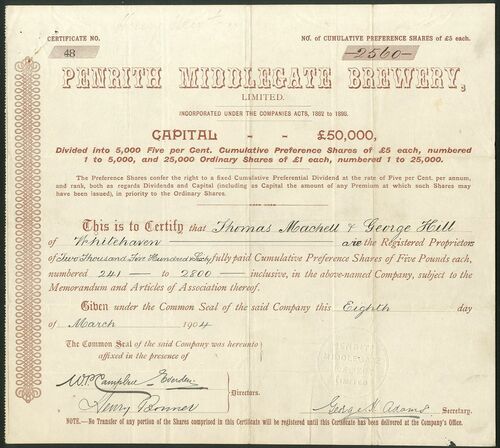 CERTIFICATE NO.
48
NO. OF CUMULATIVE PREFERENCE SHARES OF £5 each.
—2560—
PENRITH MIDDLEGATE BREWERY,
LIMITED.
INCORPORATED UNDER THE COMPANIES ACTS, 1862 TO 1898.
CAPITAL - - £50,000,
Divided into 5,000 Five per Cent. Cumulative Preference Shares of £5 each, numbered
1 to 5,000, and 25,000 Ordinary Shares of £1 each, numbered 1 to 25,000.
The Preference Shares confer the right to a fixed Cumulative Preferential Dividend at the rate of Five per Cent. per annum,
and rank, both as regards Dividends and Capital (including as Capital the amount of any Premium at which such Shares may
have been issued), in priority to the Ordinary Shares.
This is to Certify that Thomas Machell & George Hill
of Whitehaven are the Registered Proprietors
of Two Thousand Five Hundred & Sixty fully paid Cumulative Preference Shares of Five Pounds each,
numbered 241 — to — 2800 — inclusive, in the above-named Company, subject to the
Memorandum and Articles of Association thereof.
Given under the Common Seal of the said Company this Eighth day
of March 1904
The Common Seal of the said Company was hereunto
affixed in the presence of
PENRITH
MIDDLEGATE
BREWERY
LIMITED
Directors.
Henry Bonner
George H. Adams Secretary.
NOTE.—No Transfer of any portion of the Shares comprised in this Certificate will be registered until this Certificate has been delivered at the Company's Office.